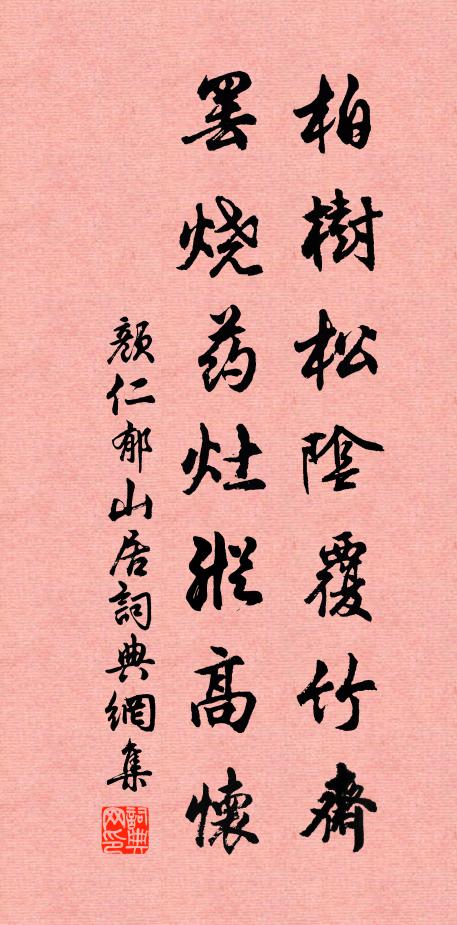 柏樹松陰覆竹齋
罢烧药灶縱高懷
顏仁郁山居詞典網集
詞典网印